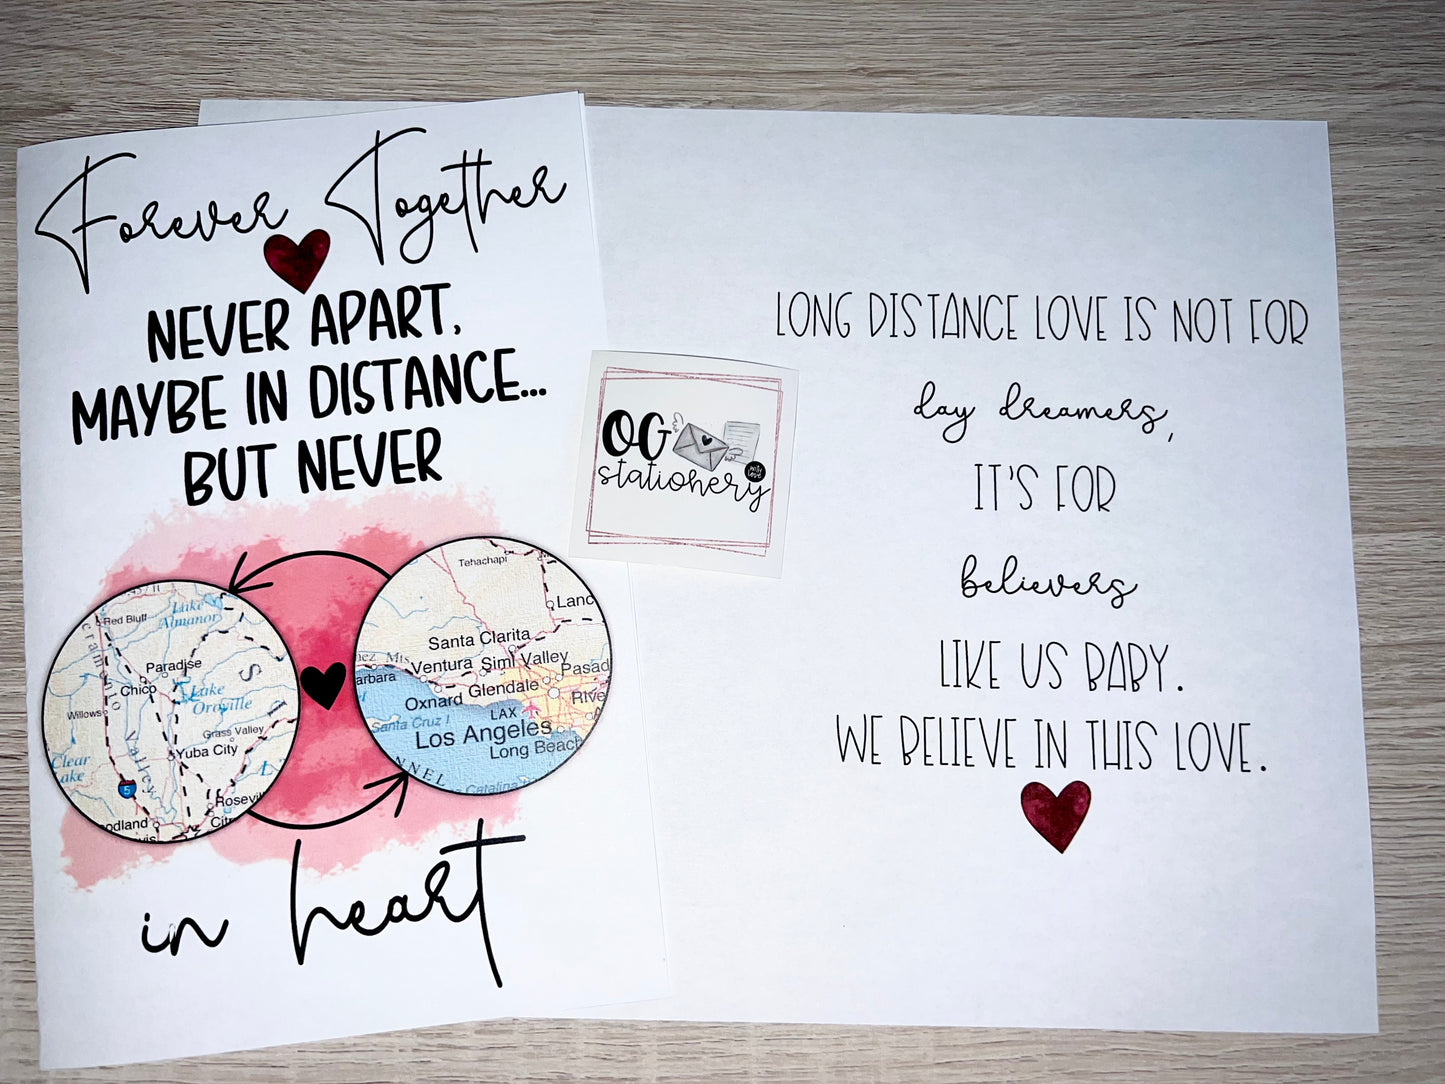 Forever Together
NEVER APART,
MAYBE IN DISTANCE...
BUT NEVER
Red Bluff
Lake
Almanor
Paradise
Chico
Lake
Oroville
Willows
Grass Valley
Yuba City
Clear
Lake
5
Rosevil
odland
Citr
Valley
Tehachapi
Lanc
Santa Clarita
Ventura
Simi Valley
Pasad
arbara
Oxnard
Glendale
Rive
Santa Cruz I
LAX
Los Angeles
Long Beach
NNEL
Catalina
in heart
OG
stationery
LONG DISTANCE LOVE IS NOT FOR
day dreamers,
IT'S FOR
believers
LIKE US BABY.
WE BELIEVE IN THIS LOVE.